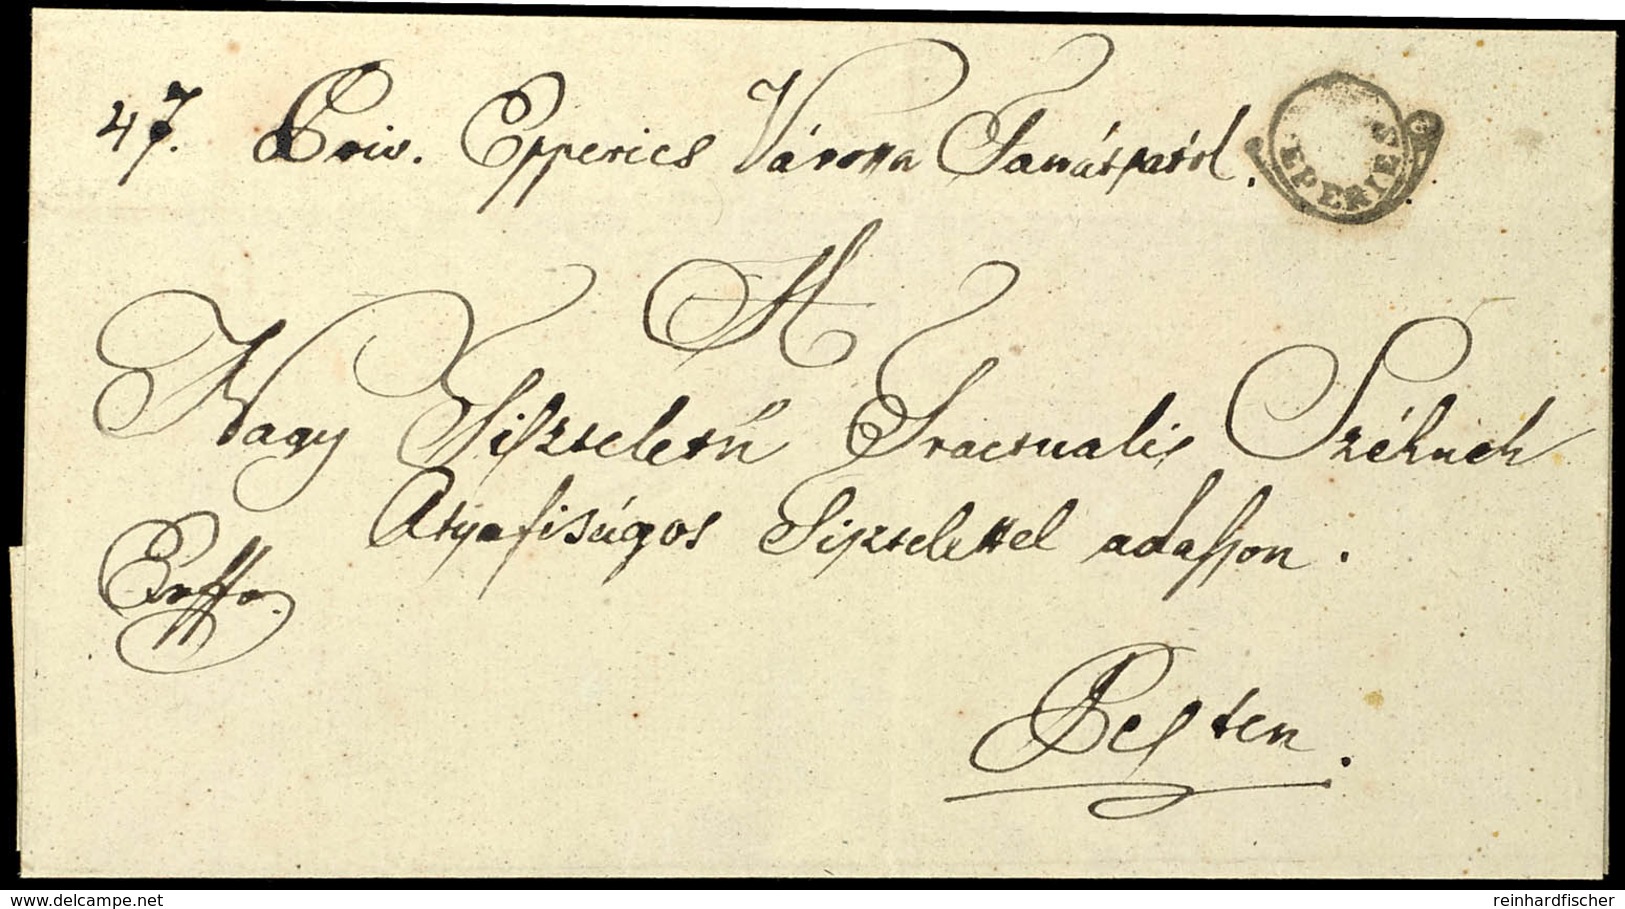 47. Priv. Epperies Város Tanátsától.
EPERIES
A
Nagy Tiszteletű Fractualis Széknek
Atyafiságos Tisztelettel adasson.
Pesten.
delcampe.net
reinhardfischer